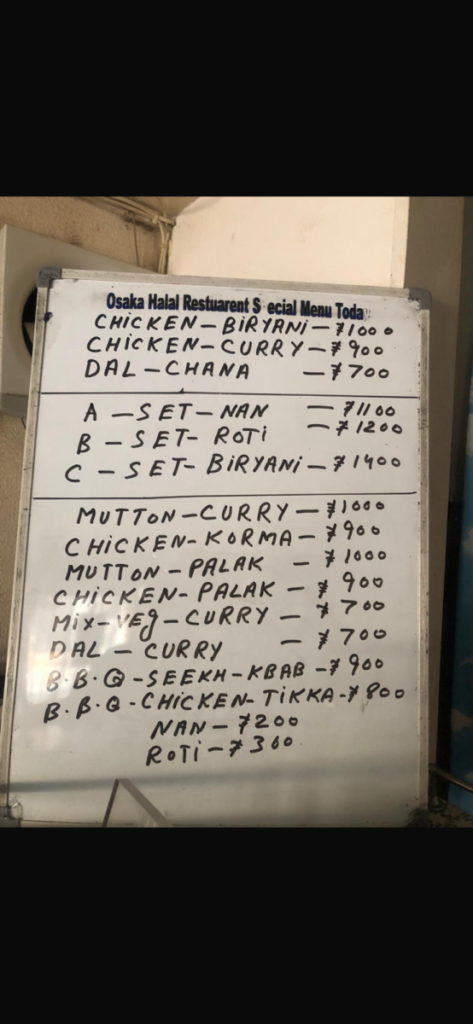 Osaka Halal Restuarent S ecial Menu Today
CHiCKEN-BiRYANi-¥1000
CHiCKEN-CURRY-¥900
DAL-CHANA -¥700
A-SET-NAN -¥1100
B-SET-ROTi -¥1200
C-SET-BiRYANi-¥1400
MUTTON-CURRY-¥1000
CHiCKEN-KORMA-¥900
MUTTON-PALAK -¥1000
CHiCKEN-PALAK-¥900
Mix-VEg-CURRY-¥700
DAL-CURRY -¥700
B.B.Q-SEEKH-KBAB-¥900
B.B.Q-CHiCKEN-TiKKA-¥800
NAN-¥200
ROTi-¥300